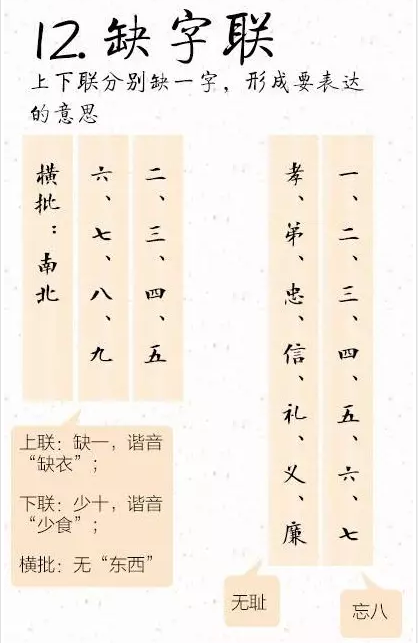 12.缺字联
上下联分别缺一字，形成要表达
的意思
一、二、三、四、五、六、七
孝、弟、忠、信、礼、义、廉
二、三、四、五
六、七、八、九
横批：南北
上联：缺一，谐音
“缺衣”；
下联：少十，谐音
“少食”；
横批：无“东西”
无耻
忘八